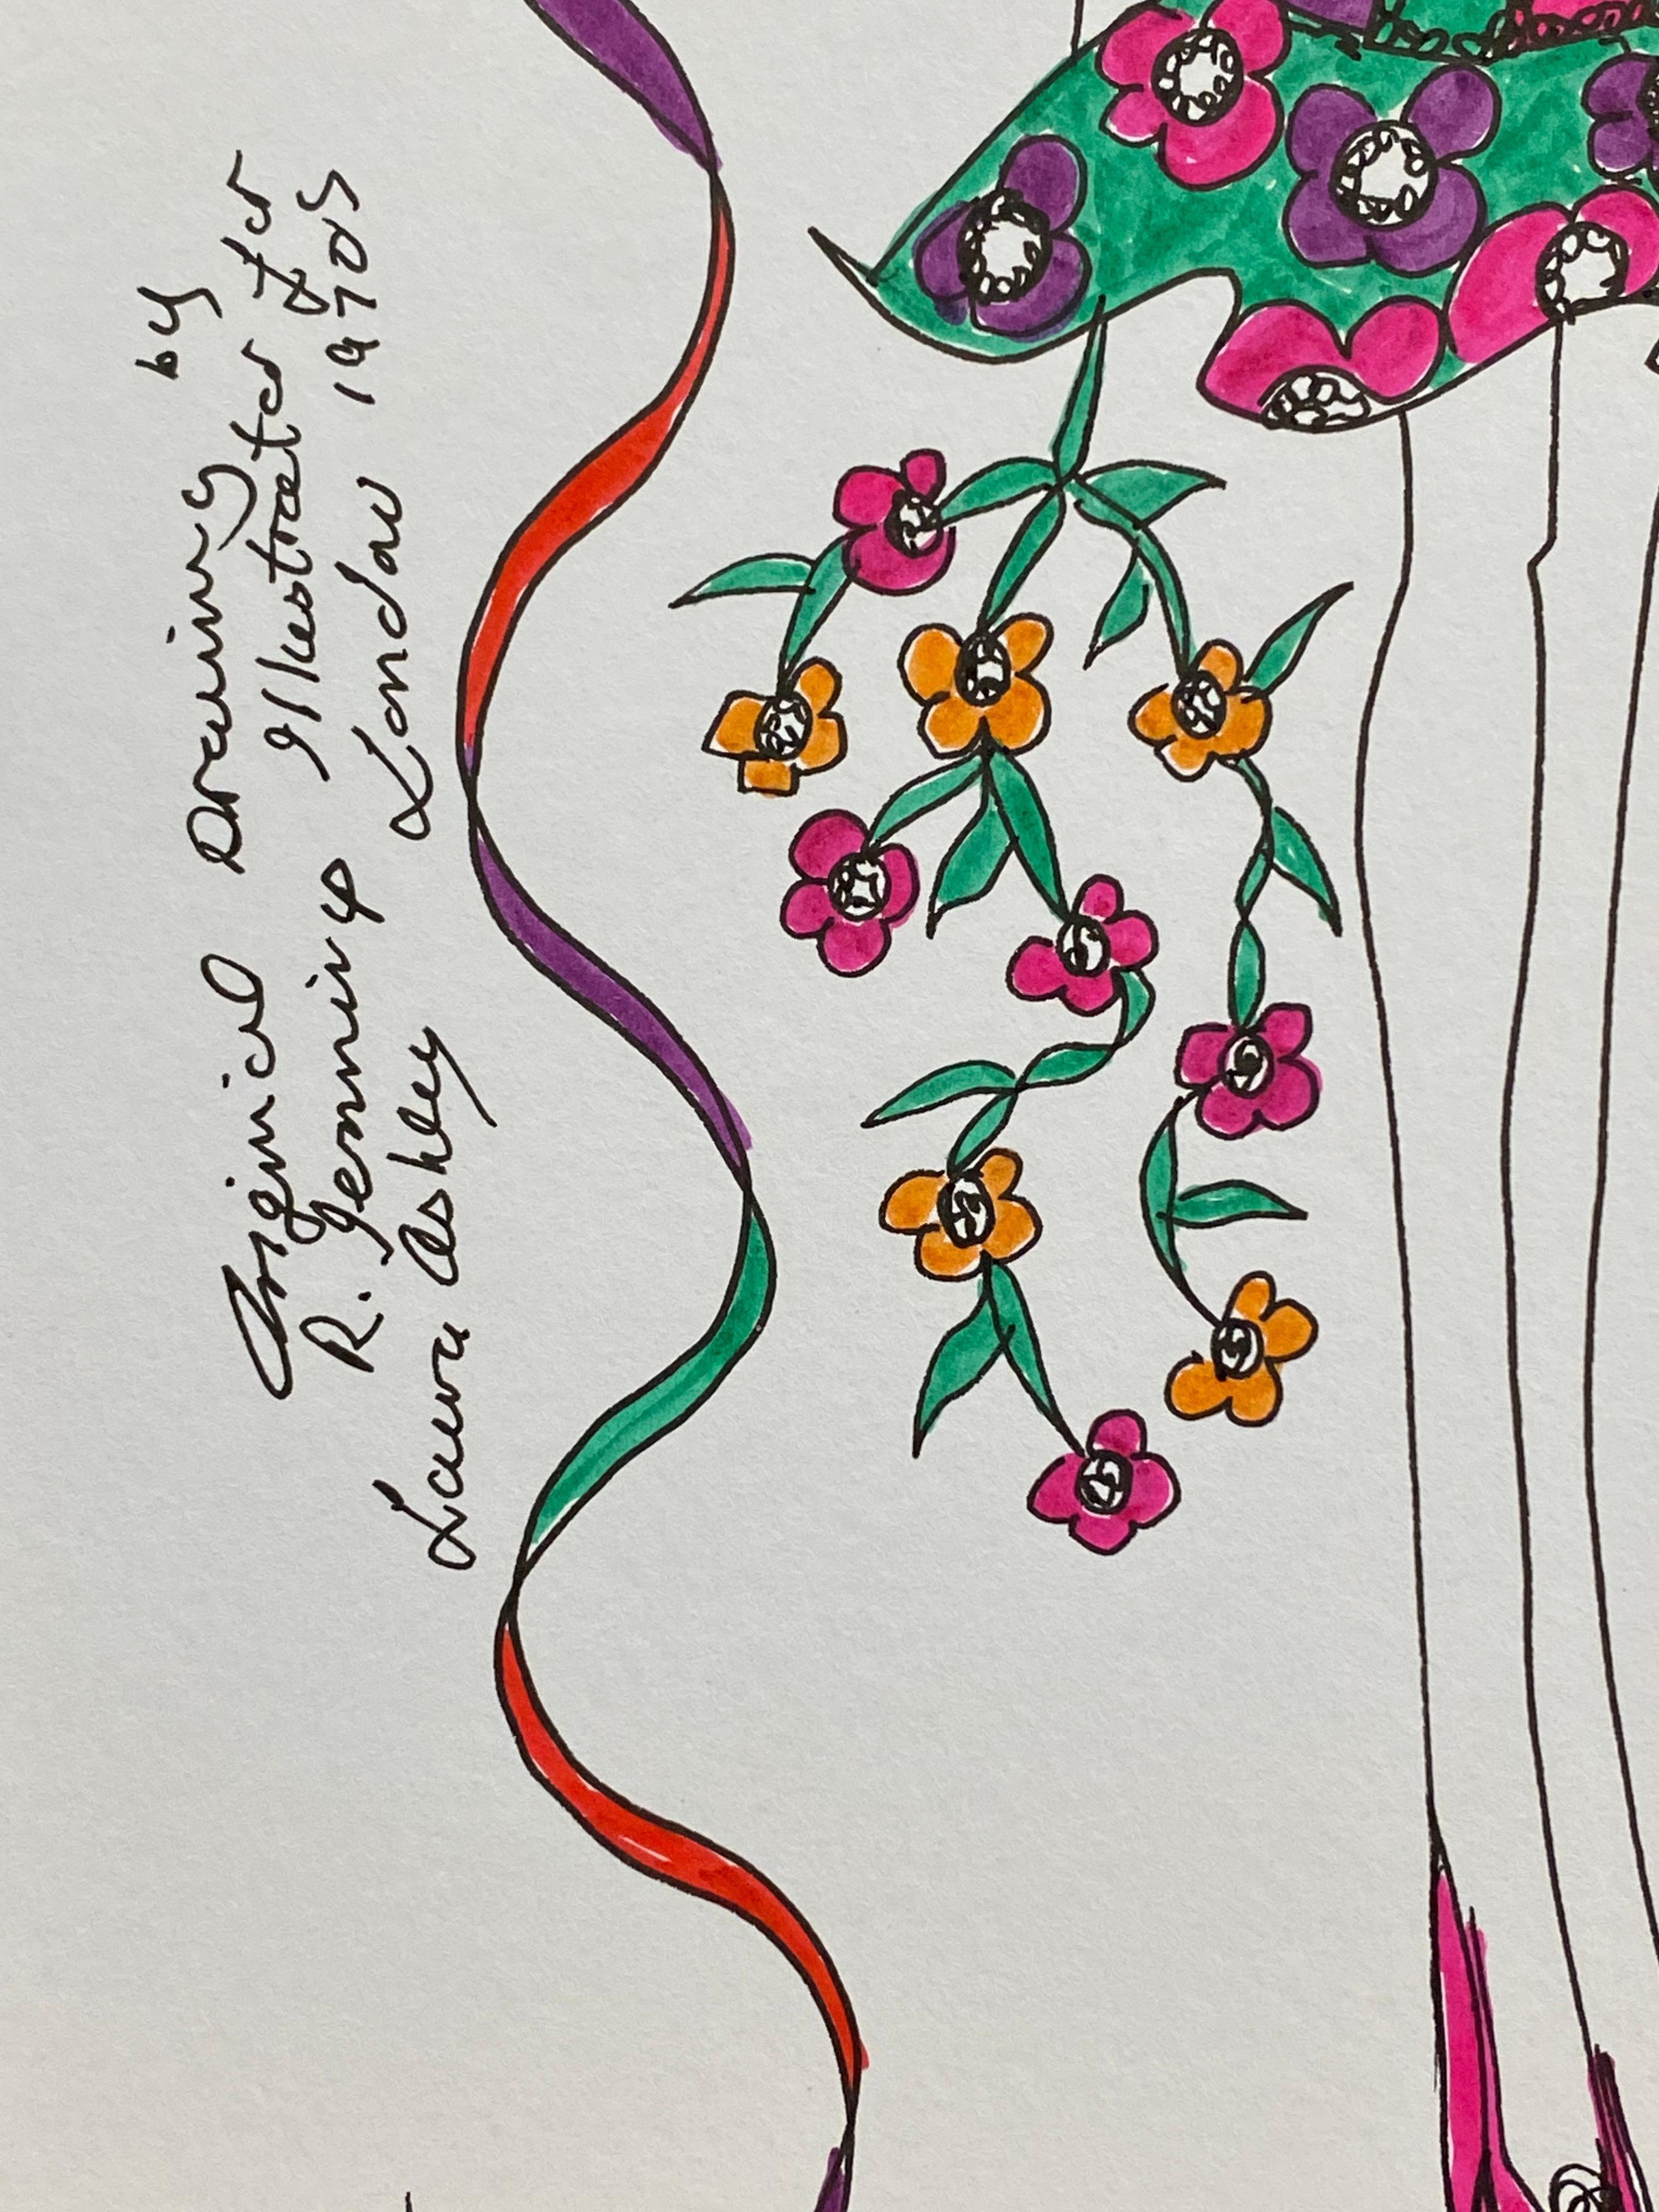 Original Drawing by
R. Jenning Illustrator for
Laura Ashley London 1970s